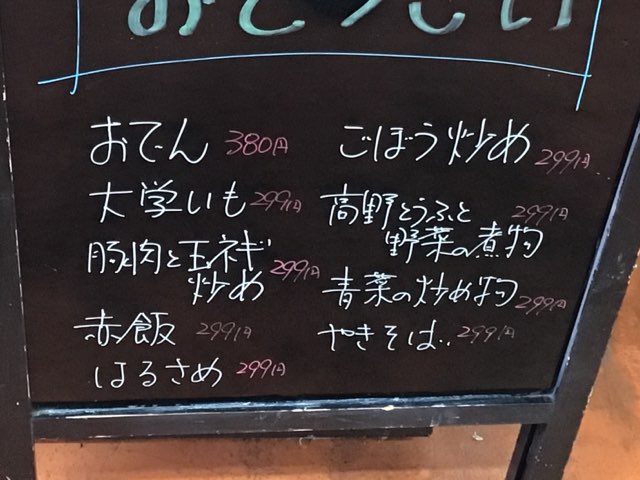 おでん 380円
大学いも 299円
豚肉と玉ネギ
炒め 299円
赤飯 299円
はるさめ 299円
ごぼう炒め 299円
高野とうふと 299円
野菜の煮物
青菜の炒め物 299円
やきそば 299円